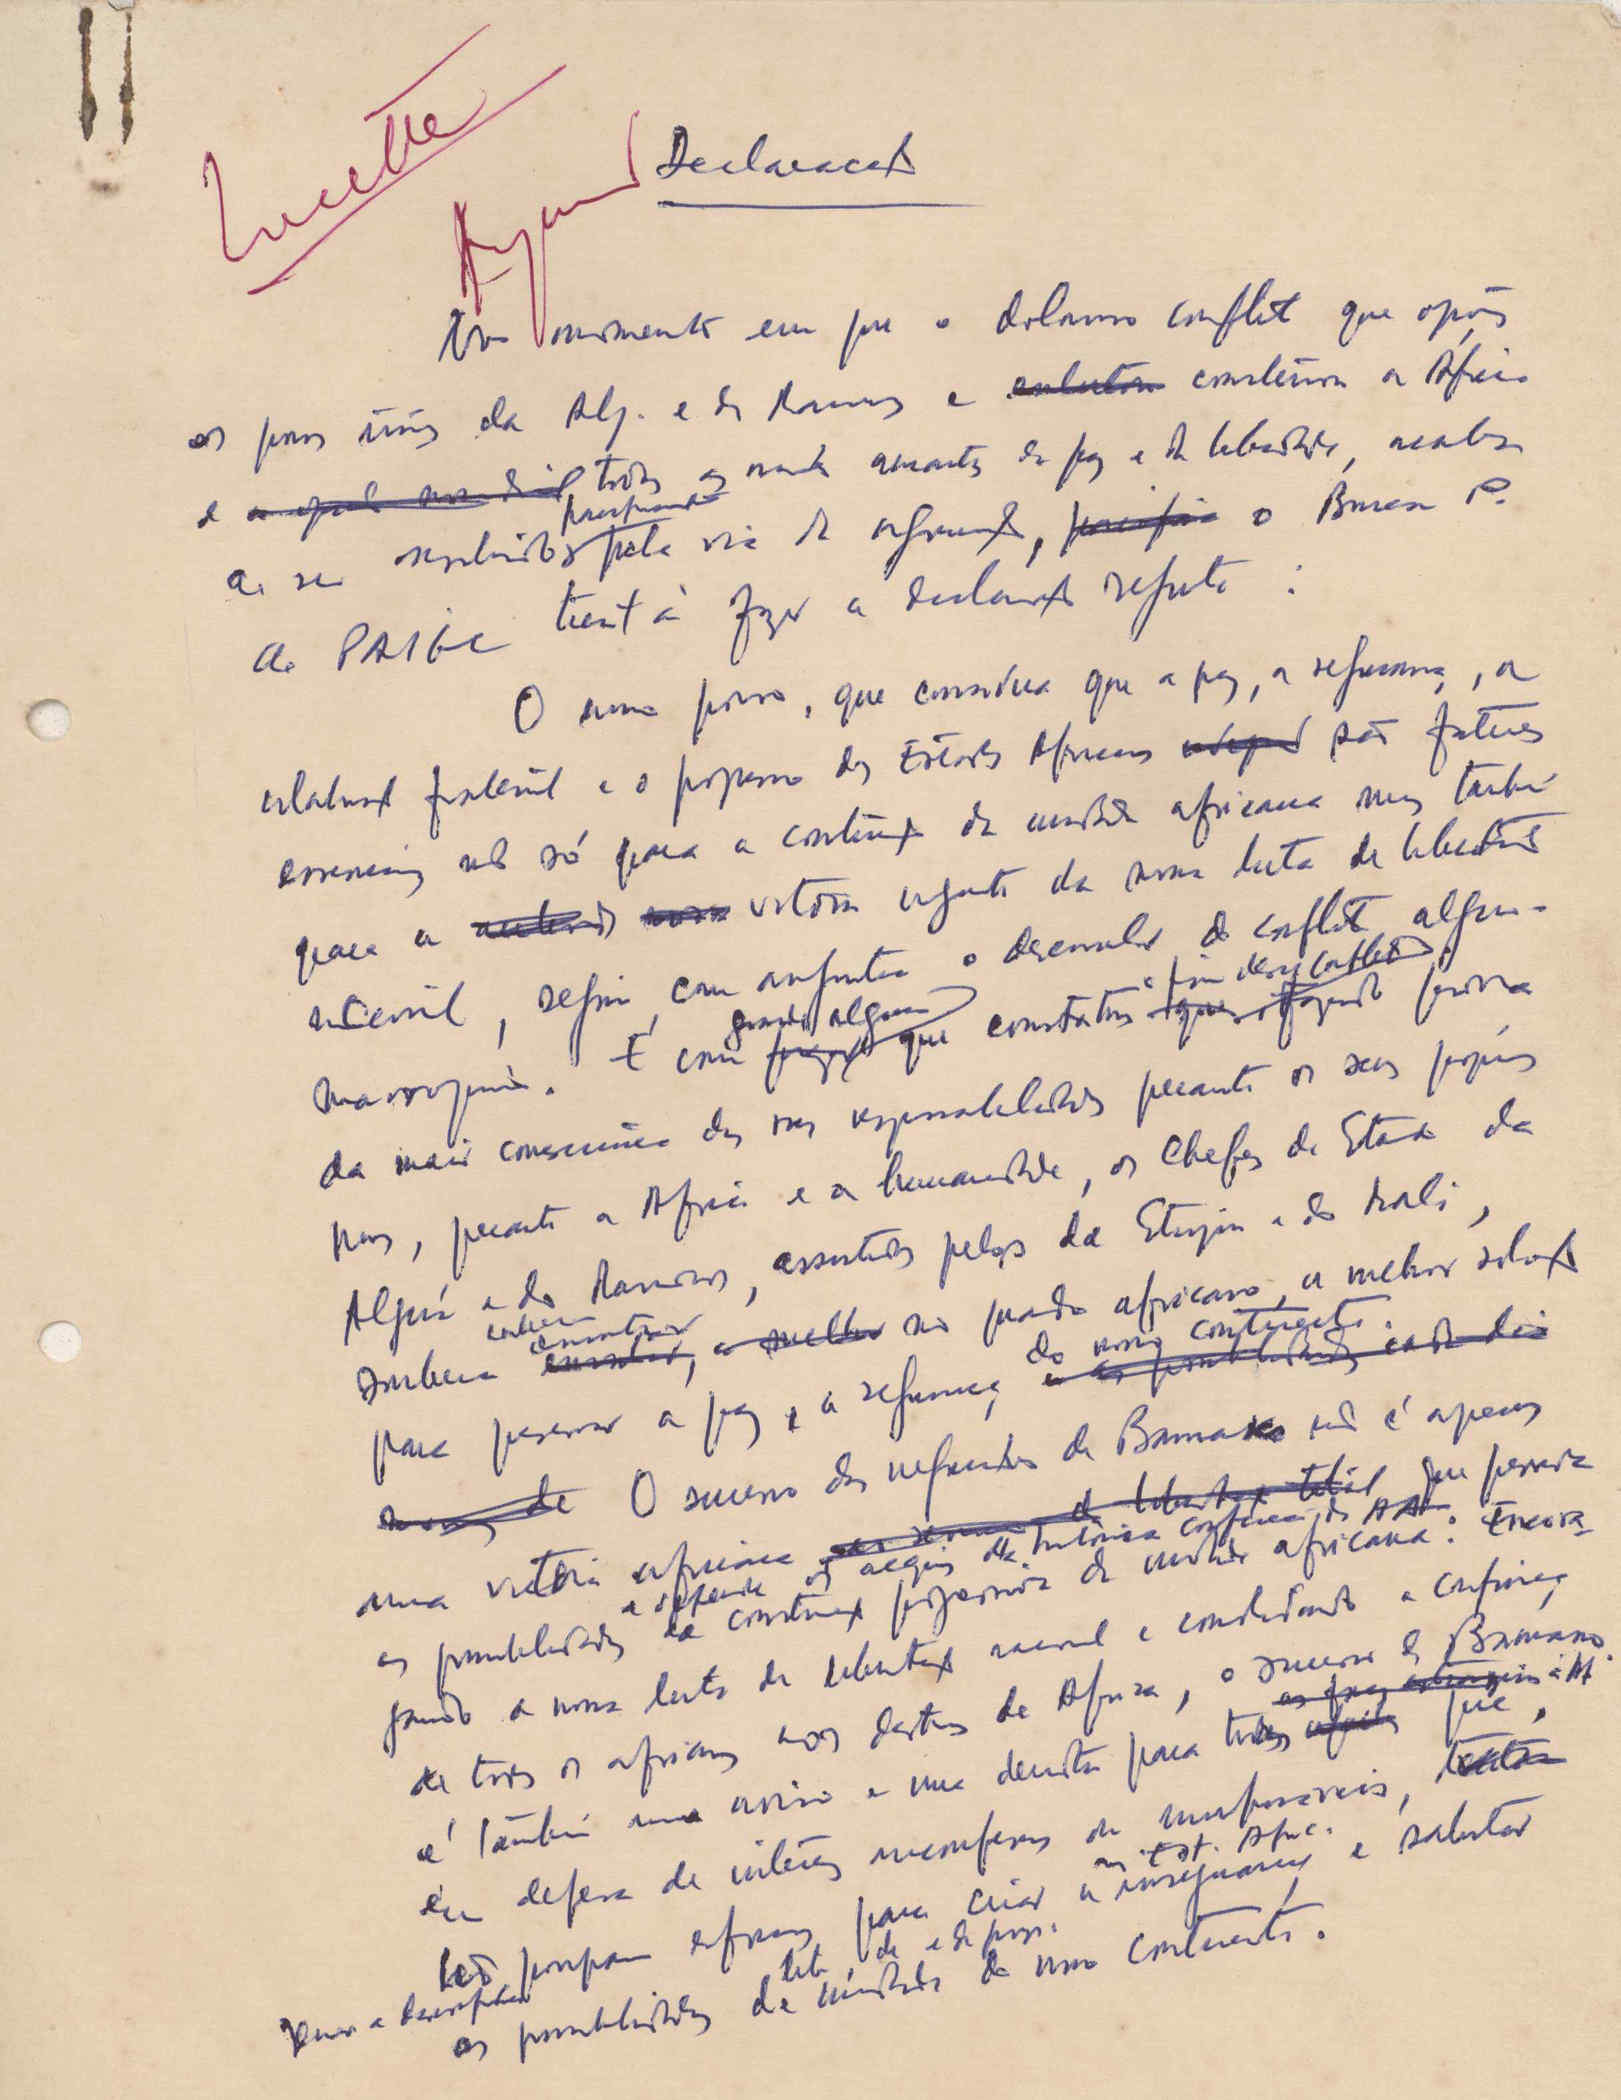 Lucette
Declaração
No momento em que o doloroso conflito que opôs
os povos irmãos da Alg. e de Marrocos e consternou a África
e todos os amantes da paz e da liberdade, acaba
de ser resolvido pela via de negociação, o Bureau P.
do PAIGC tient à fazer a declaração seguinte :
O nosso povo, que considera que a paz, a segurança, a
colaboração fraternal e o progresso dos Estados Africanos são factores
essenciais não só para a construção da unidade africana mas também
para a vitória urgente da nossa luta de libertação
nacional, seguiu com angústia o desenrolar do conflito algero-
marroquino. É com grande alegria que constatou o fim desse conflito. prova
da maior consciência das suas responsabilidades perante os seus próprios
povos, perante a África e a humanidade, os Chefes de Estado da
Algéria e do Marrocos, assistidos pelos da Etiópia e do Mali,
souberam encontrar no quadro africano, a melhor solução
para preservar a paz e a segurança do nosso continente.
O sucesso das negociações de Bamako não é apenas
uma vitória africana que preserva
as possibilidades de construção progressiva da unidade africana. Encora-
jando a nossa luta de libertação nacional e consolidando a confiança
de todos os africanos nos destinos de África, o sucesso de Bamako
é também um aviso e uma derrota para todos que,
em defesa de interesses inconfessos ou inconfessáveis,
não poupam esforços para criar a insegurança nos Est. Afric. e sabotar
as possibilidades de unidade do nosso continente.